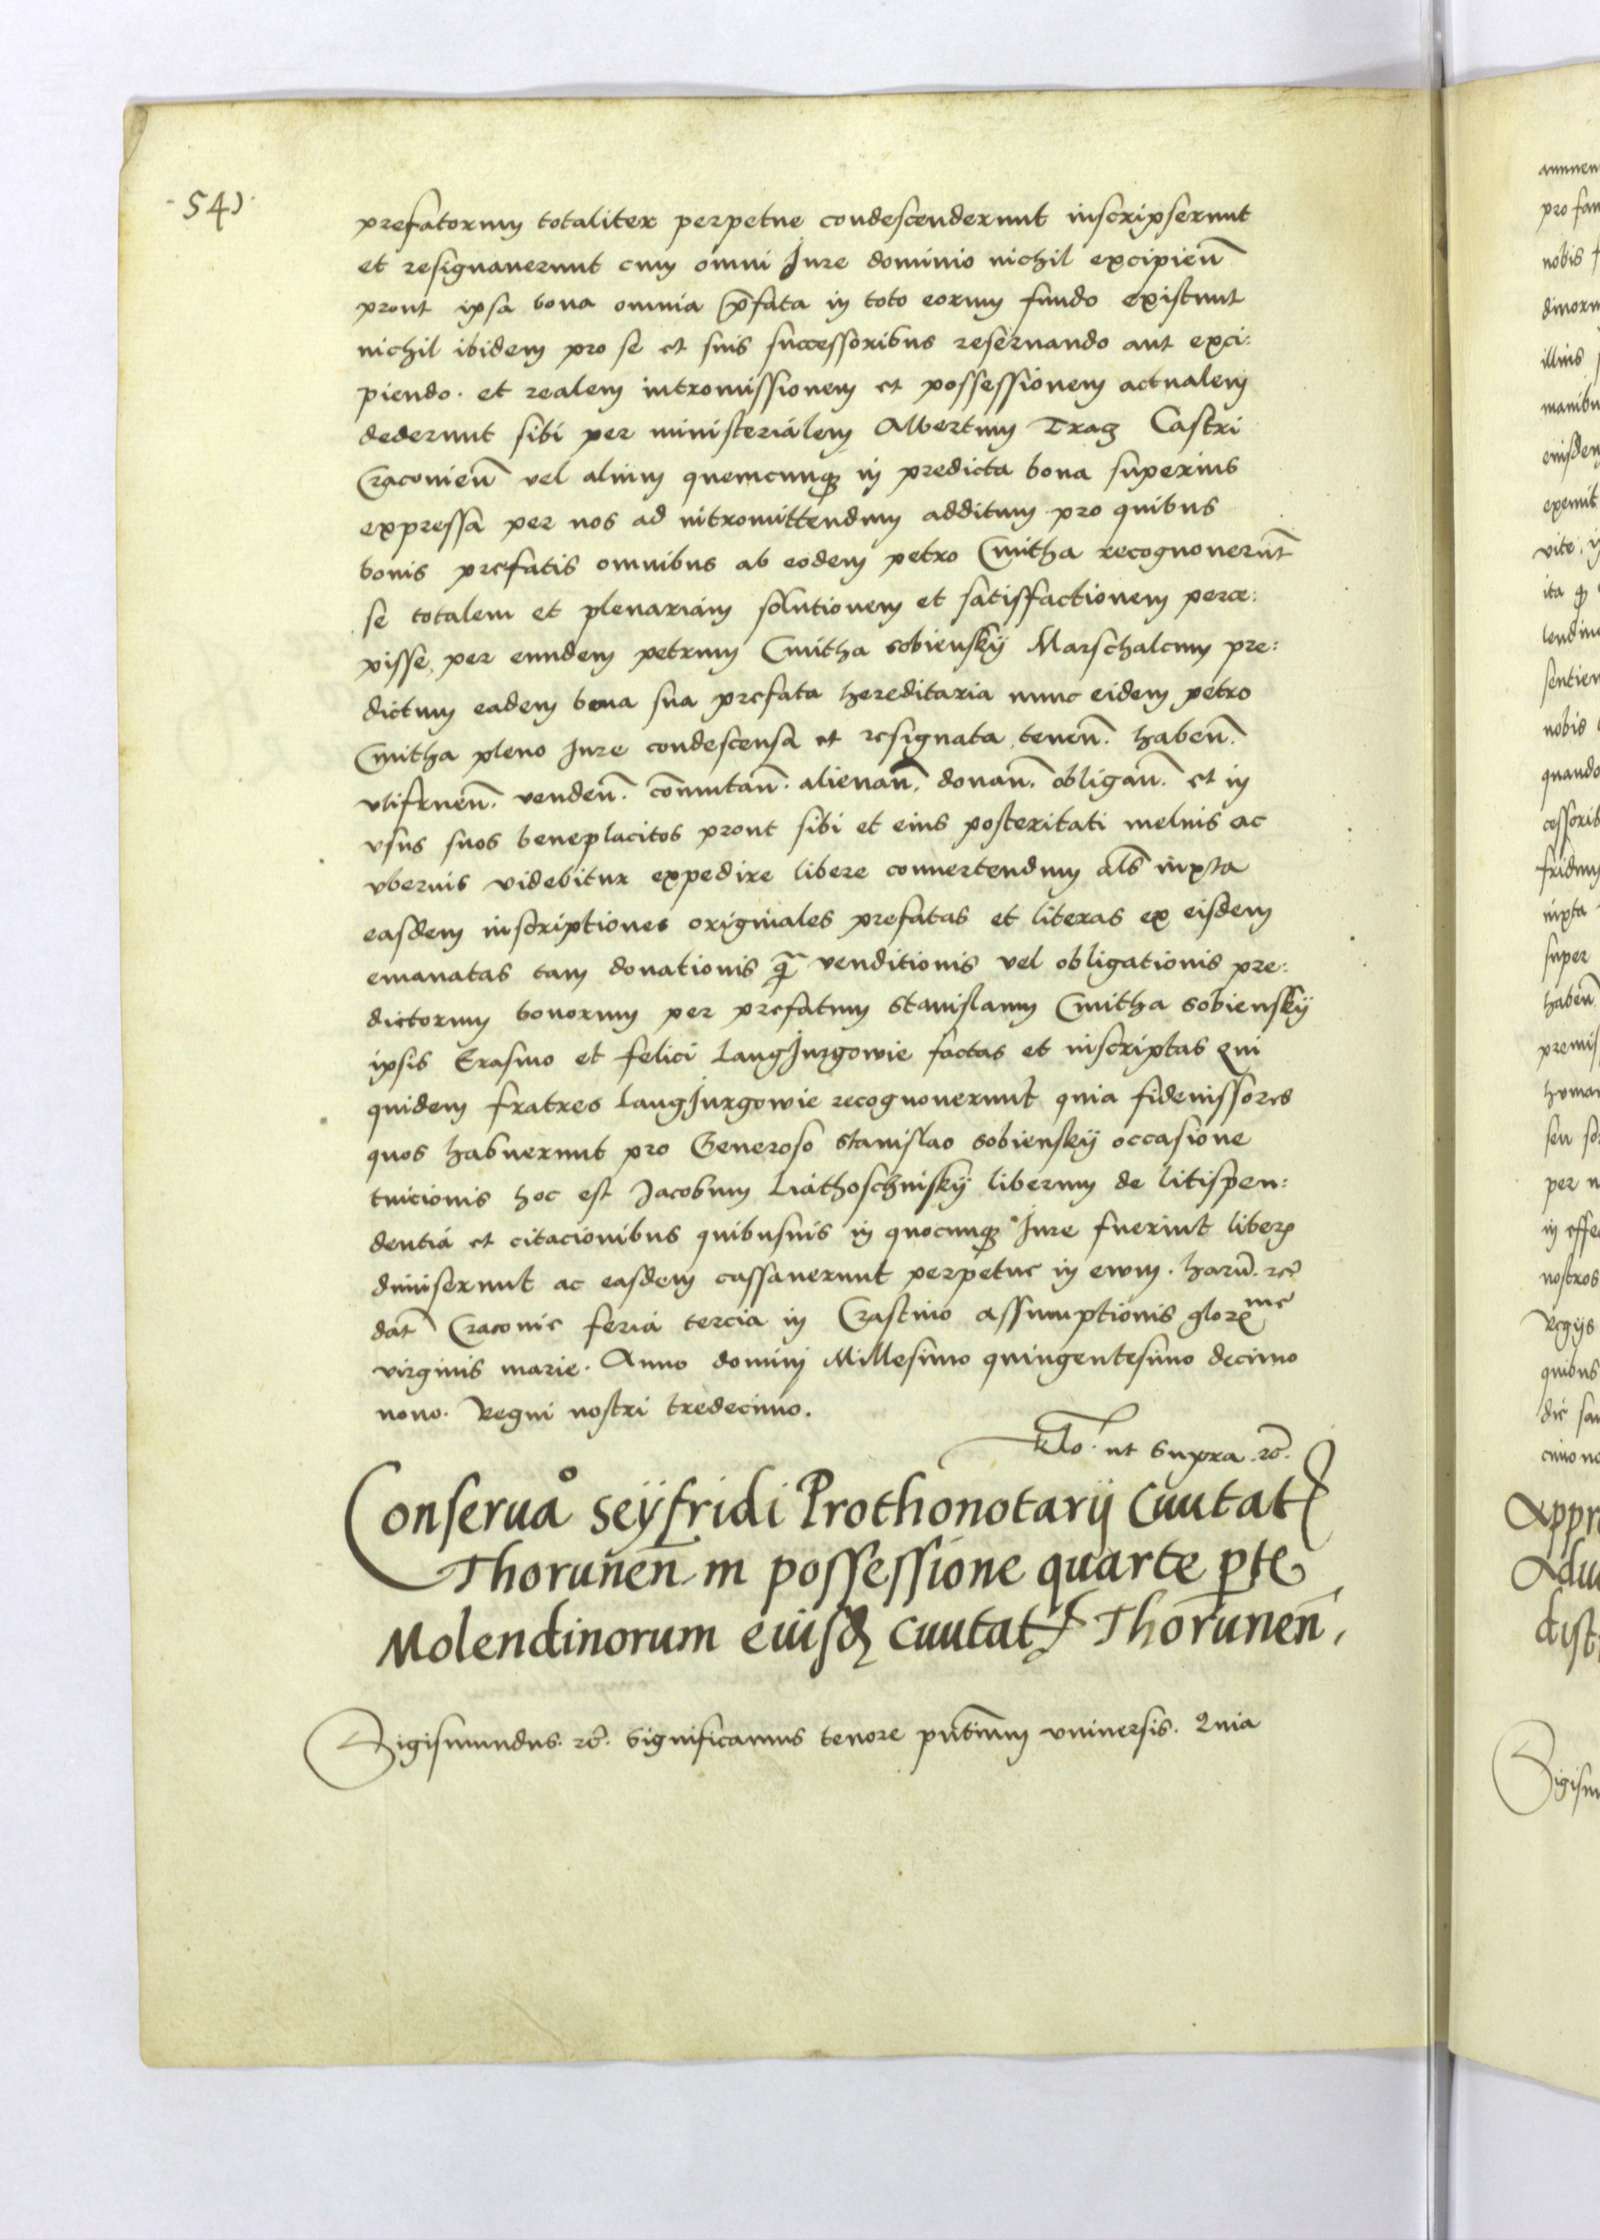 541
prefatorum totaliter perpetue condescenderunt inscripserunt
et resignaverunt cum omni Jure dominio nichil excipieñ
prout ipsa bona omnia p̄fata in toto eorum fundo existunt
nichil ibidem pro se et suis successoribus reservando aut exci:
piendo. et realem intromissionem et possessionem actualem
dederunt sibi per ministerialem Albertum Trag Castri
Cracovieñ vel alium quemcunq in predicta bona superius
expressa per nos ad intromittendum additum pro quibus
bonis prefatis omnibus ab eodem petro Cmitha recognoverūt
se totalem et plenariam solutionem et satisfactionem perce:
pisse, per eundem petrum Cmitha sobiensky Marschalcum pre:
dictum eadem bona sua prefata hereditaria nunc eidem petro
Cmitha pleno Jure condescensa et resignata, teneñ. habeñ.
utifrueñ. vendeñ. cōmutañ. alienañ. donañ. obligañ. et in
usus suos beneplacitos prout sibi et eius posteritati melius ac
uberius videbitur expedire libere convertendum als iuxta
easdem inscriptiones originales prefatas et literas ex eisdem
emanatas tam donationis q̄ venditionis vel obligationis pre:
dictorum bonorum per prefatum Stanislaum Cmitha sobiensky
ipsis Erasmo et felici LangJurgowie factas et inscriptas Qui
quidem fratres LangJurgowie recognoverunt quia fideiussores
quos habuerunt pro Generoso Stanislao sobiensky occasione
tuicionis hoc est Jacobum Liathoschinsky liberum de litispen:
dentia et citacionibus quibusvis in quocunq Jure fuerint liber
dimiserunt ac easdem cassaverunt perpetue in evum. harū. rc̄
dat̄ Cracovie feria tercia in Crastino assumptionis glor me
virginis marie. Anno domini Millesimo quingentesimo decimo
nono. Regni nostri tredecimo.
ut supra. rc̄.
Conservaº Seyfridi Prothonotarij Civitat
Thoruneñ in possessione quarte pte
Molendinorum eiusd Civitat Thoruneñ,
Sigismundus. rc̄. Significamus tenore pn̄tium universis. Quia